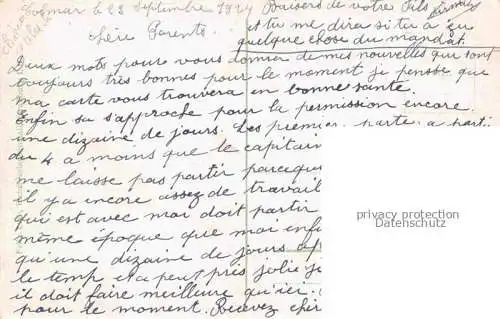 Colmar le 23 Septembre 1924 Baisers de votre Fils
Chère Parents et tu me diras si tu a eu
quelque chose du mandat.
Deux mots pour vous donner de mes nouvelles qui sont
toujours très bonnes pour le moment je pensse que
ma carte vous trouvera en bonne santé.
Enfin sa s'approche pour la permission encore
une dizaine de jours. Les premier parte a parti
du 4 a moins que le capitain
me laisse pas partir parceque
il y a encore assez de travail
qui est avec moi doit partir
même époque que moi enfi
qu'une dizaine de jours a
le temp et a peut près jolie je
il doit faire meilleure qu'ici.
pour le moment. Recevez cher
privacy protection
Datenschutz